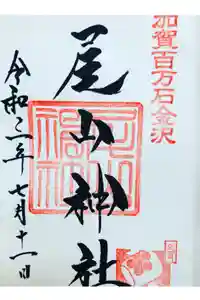 加賀百万石金沢
尾山神社
令和三年七月十一日